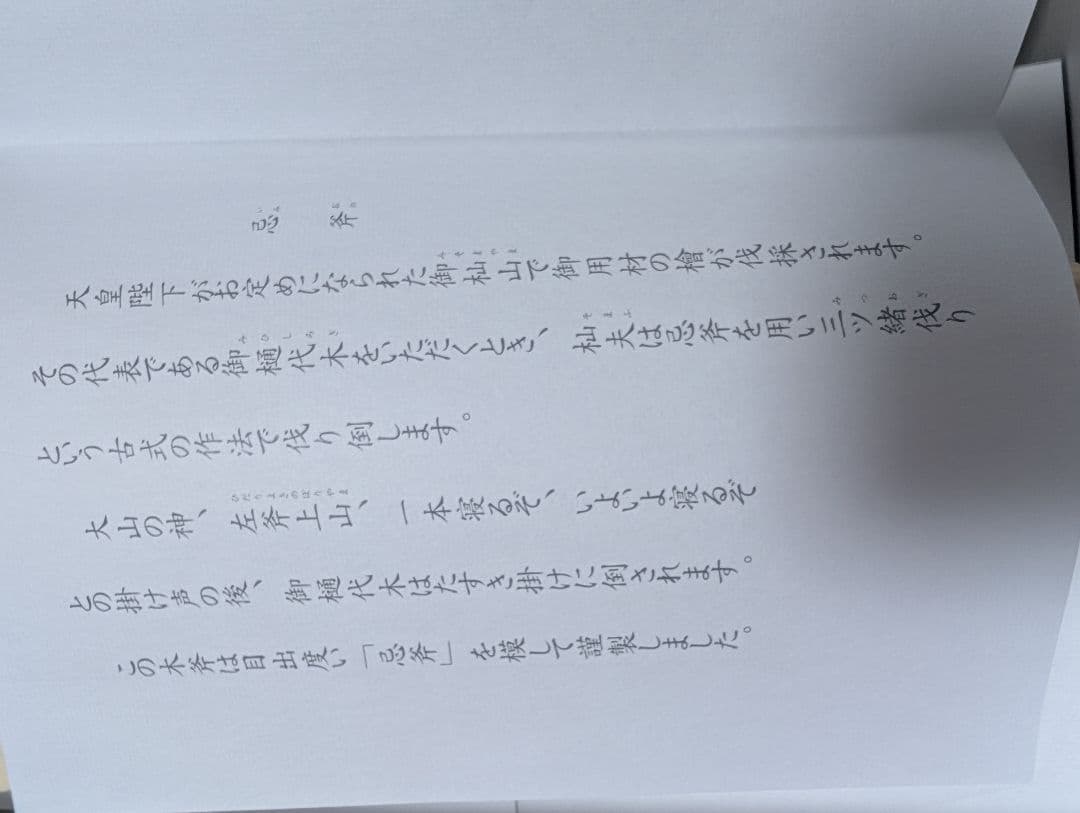 忌 斧
天皇陛下がお定めになられた御杣山で御用材の檜が伐採されます。
その代表である御樋代木をいただくとき、杣夫は忌斧を用い三ツ緒伐り
という古式の作法で伐り倒します。
大山の神、左斧上山、一本寝るぞ、いよいよ寝るぞ
との掛け声の後、御樋代木はたすき掛けに倒されます。
この木斧は目出度い「忌斧」を模して謹製しました。